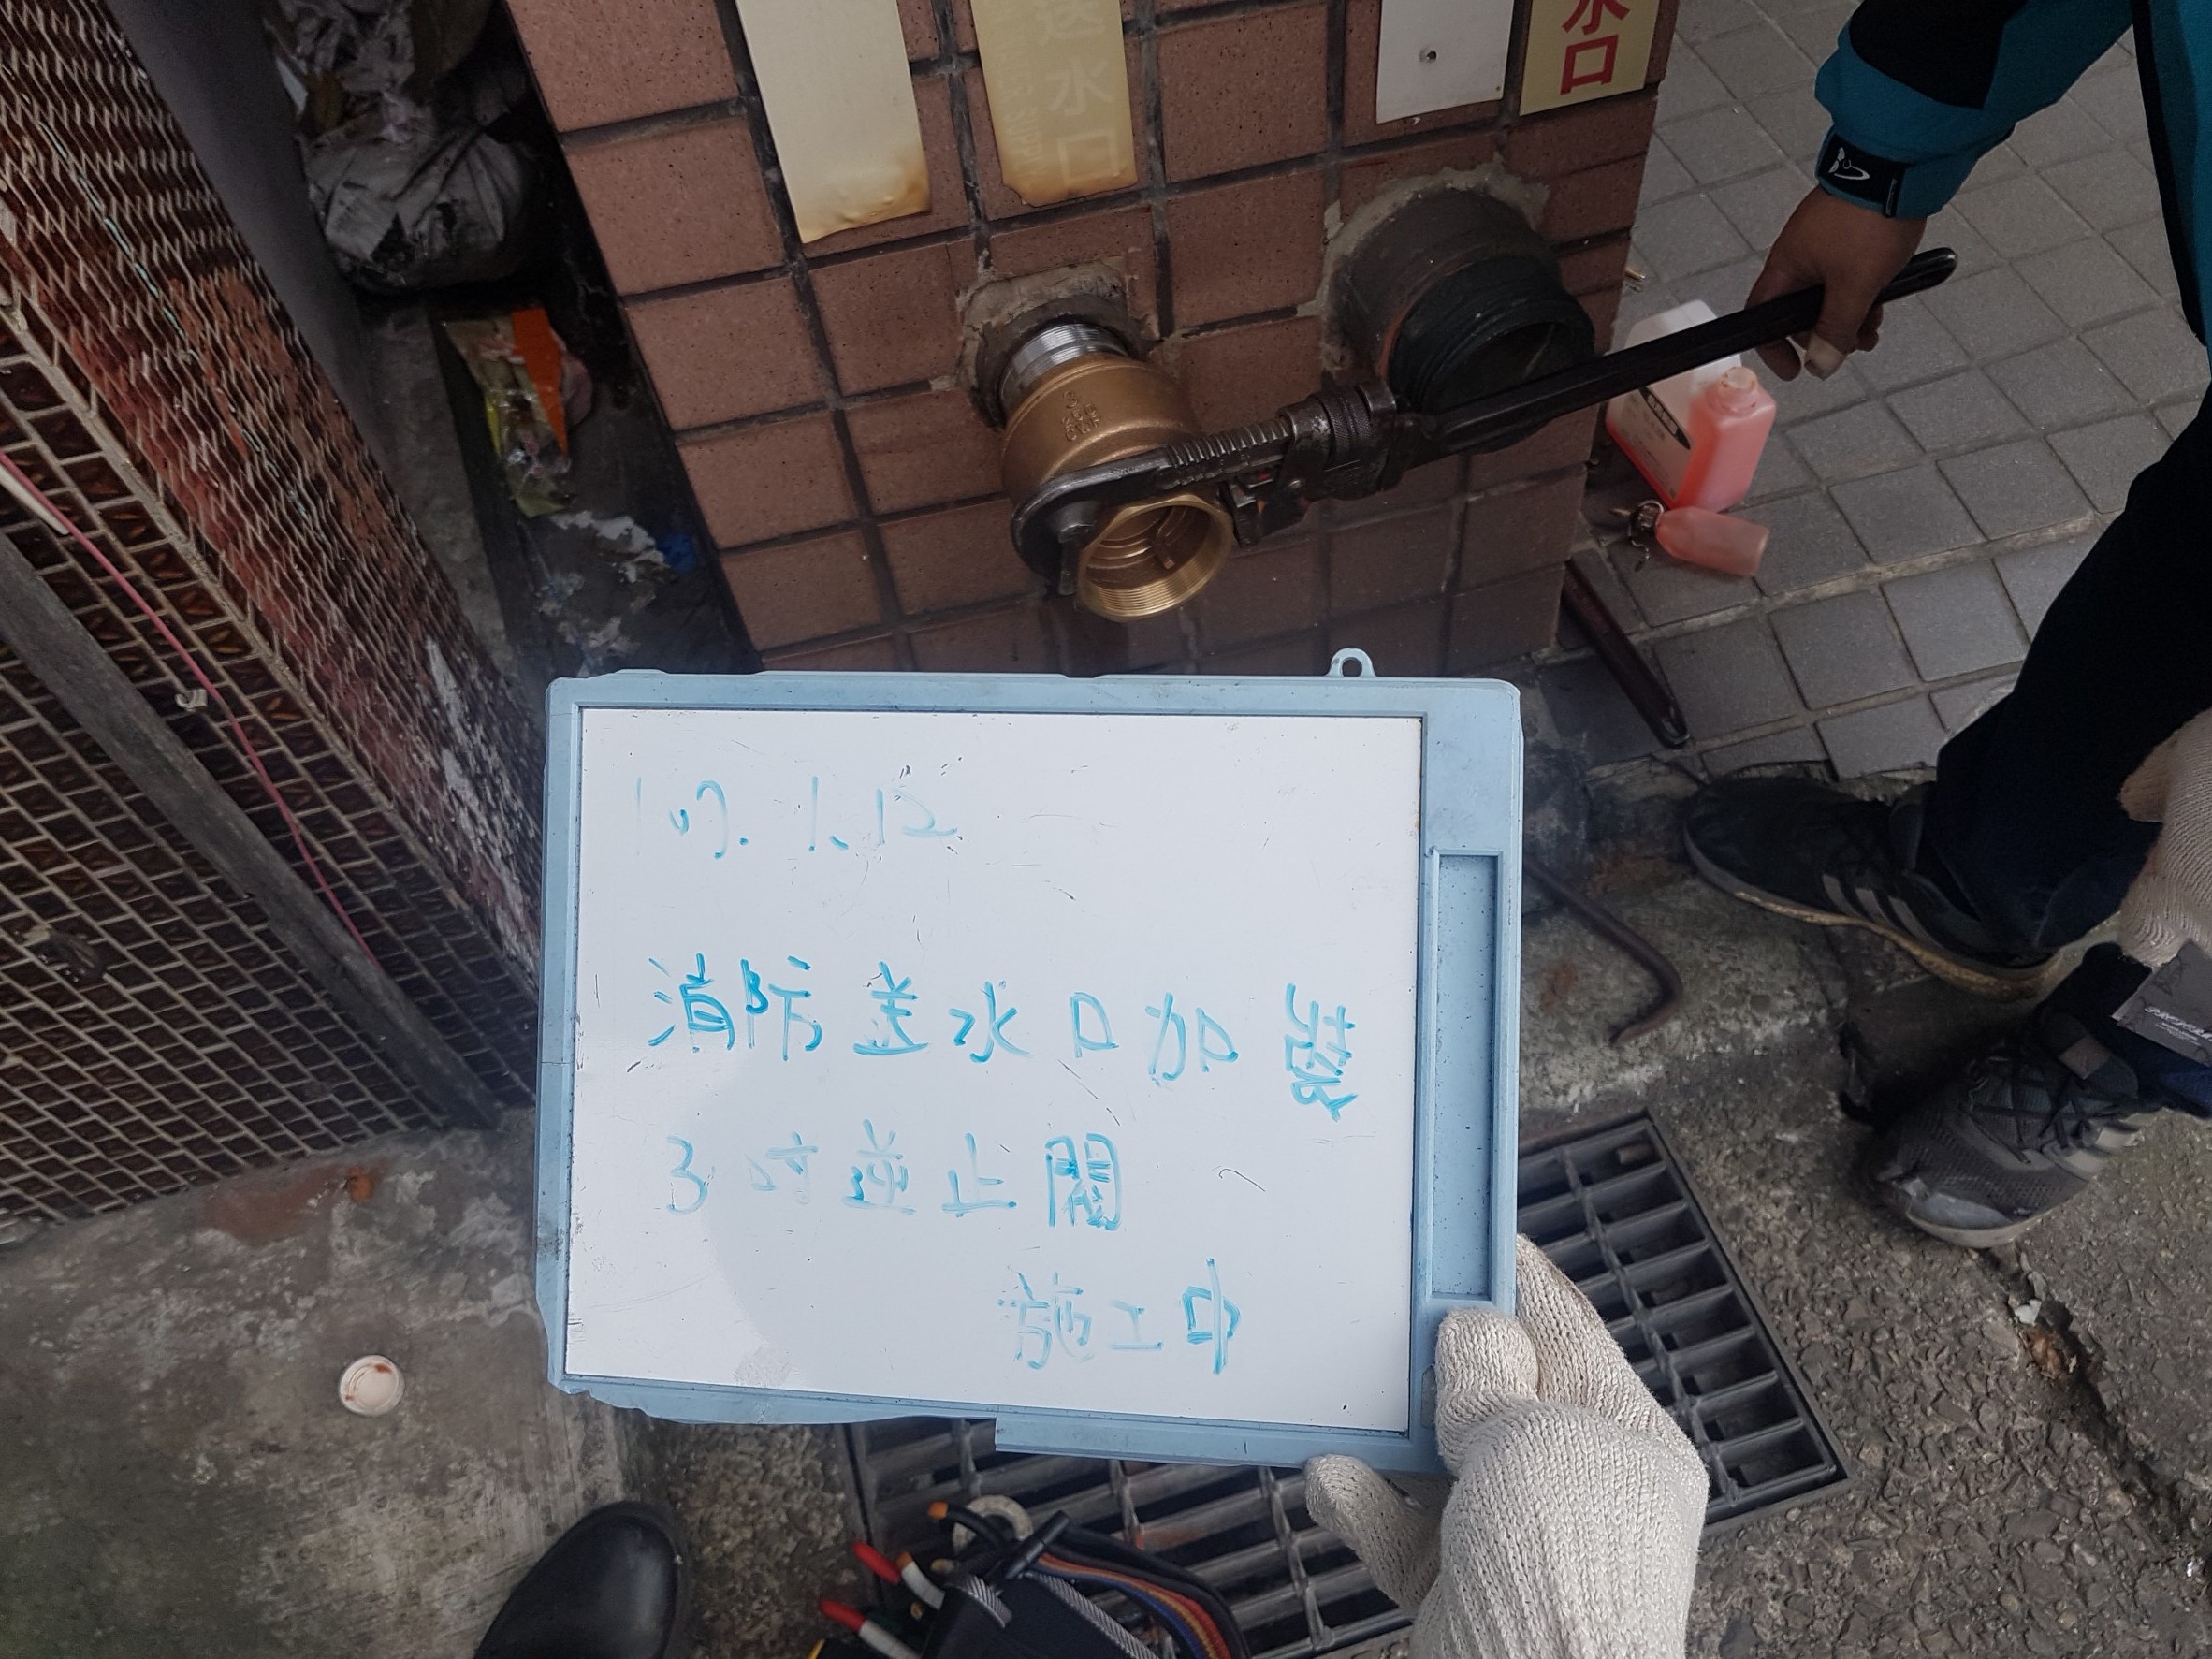 送水口
水口
107.1.12
消防送水口加裝
3吋逆止閥
施工中